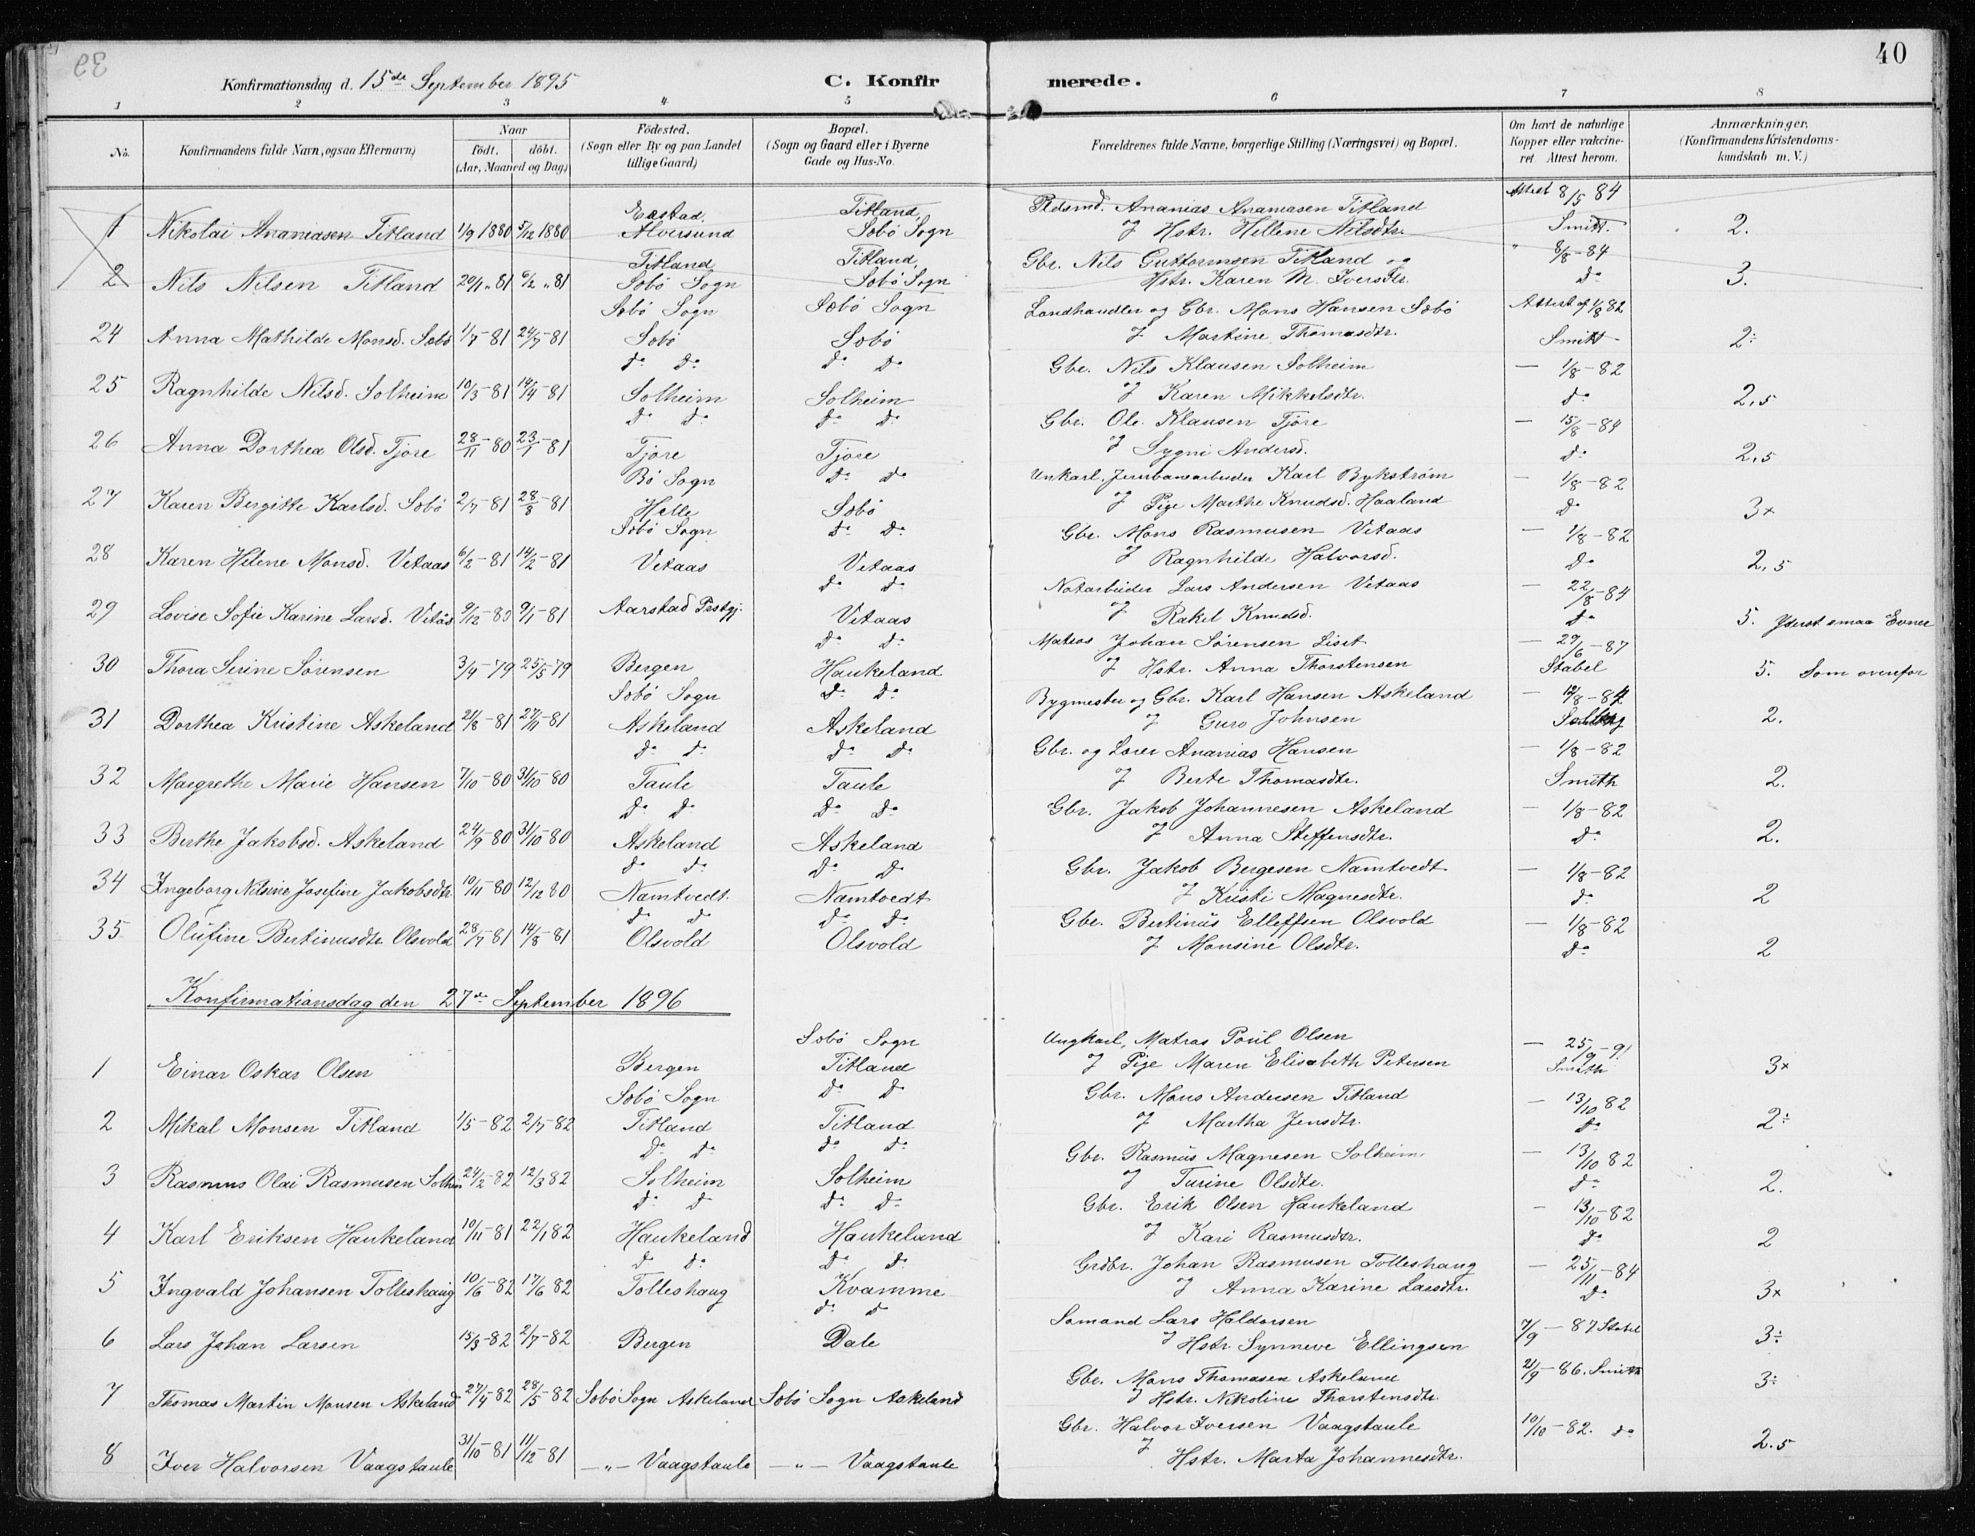 40
Konfirmationsdag d. 15de September 1895 C. Konfir merede.
1 2 3 4 5 6 7 8
No. Konfirmandens fulde Navn, ogsaa Efternavn) Naar født. døbt. (Aar, Maaned og Dag) Fødested. (Sogn eller By og paa Landet tillige Gaard) Bopæl. (Sogn og Gaard eller i Byerne Gade og Hus-No. Forældrenes fulde Navne, borgerlige Stilling (Næringsvei) og Bopæl. Om havt de naturlige Kopper eller vakcineret Attest herom. Anmærkninger. (Konfirmandens Kristendomskundskab m. V.)
Eastad, Titland, Pldsmd. Ananias Ananiasen Titland Attest 8/5 84
1 Nikolai Ananiasen Titland 1/9 1880 5/12 1880 Alversund Sæbø Sogn & Hstr. Hellene Nilsdtr. Smitt. 2.
Titland Titland, Gbr. Nils Guttormsen Titland og " 8/8-84
2 Nils Nilsen Titland 20/1 " 81 6/2 " 81 Sæbø Sogn Sæbø Sogn Hstr. Karen M. Iversdtr. do 3.
Sæbø Sogn Sæbø Sogn Landhandler og Gbr. Mons Hansen Sæbø Attest af 1/8 82
24 Anna Mathilde Monsd. Sæbø 1/7-81 24/7-81 Sæbø Sæbø & Martine Thomasdtr. Smitt 2÷
do do do do Gbr. Nils Klausen Solheim — 1/8-82
25 Ragnhilde Nilsd. Solheim 10/3-81 14/4-81 Solheim Solheim & Karen Mikkelsdtr. do 2,5
do do do do Gbr. Ole Klausen Tjore — 15/8-84
26 Anna Dorthea Olsd. Tjore 28/11-80 23/1-81 Tjore Tjore & Sygni Andersd. do 2,5
Bø Sogn do do Unkarl, Jernbanearbeider Karl Bykstrøm — 1/8-82
27 Karen Bergitte Karlsd. Sæbø 2/7-81 28/8-81 Helle Sæbø & Pige Marthe Knudsd. Haaland do 3×
Sæbø Sogn do do Gbr. Mons Rasmusen Vetaas — 1/8-82
28 Karen Helene Monsd. Vetaas 6/2-81 14/2-81 Vetaas Vetaas & Ragnhilde Halvorsd. do 2,5
do do Notarbeider Lars Andersen Vetaas — 22/8-84
29 Lovise Sofie Karine Larsd. Vetås 9/12-80 9/1-81 Aarstad Prstgj. Vetaas & Rakel Knudsd. do 5. Yderst smaa Evner
do do Matros Johan Sørensen Liset — 29/6-87
30 Thora Serine Sørensen 3/4-79 25/5-79 Bergen Haukeland & Hstr. Anna Thorstensen Stabel 5. Som ovenfor
Sæbø Sogn do do Bygmester og Gbr. Karl Hansen Askeland — 12/8-84
31 Dorthea Kristine Askeland 21/8-81 27/11-81 Askeland Askeland & Guro Johnsen 2.
do do do do Gbr. og Lærer Ananias Hansen — 1/8-82
32 Margrethe Marie Hansen 7/10-80 31/10-80 Taule Taule & Berte Thomasdtr. Smith 2.
do do do do Gbr. Jakob Johannesen Askeland — 1/8-82
33 Berthe Jakobsd. Askeland 24/9-80 31/10-80 Askeland Askeland & Anna Steffensdtr. do 2.
do do do do Gbr. Jakob Bergesen Namtvedt — 1/8-82
34 Ingeborg Nilsine Josefine Jakobsdtr. 10/11-80 12/12 80 Namtvedt. Namtvedt & Kristi Magnesdtr. do 2
do do do do Gbr. Bertinus Elleffsen Olsvold — 1/8-82
35 Olufine Bertinusdtr. Olsvold 28/7-81 14/8-81 Olsvold Olsvold & Monsine Olsdtr. do 2
Konfirmationsdag den 27de September 1896
Sæbø Sogn Ungkarl, Matros Poul Olsen — 25/9-91
1 Einar Oskar Olsen Bergen Titland & Pige Maren Elisabeth Petersen Smith 3×
Sæbø Sogn do do Gbr. Mons Andersen Titland — 13/10 82
2 Mikal Monsen Titland 1/5-82 2/7-82 Titland Titland & Martha Jensdtr. do 2÷
do do do do Gbr. Rasmus Magnesen Solheim — 13/10 82
3 Rasmus Olai Rasmusen Solheim 24/2-82 12/3 82 Solheim Solheim & Turine Olsdtr. do 2.
do do do do Gbr. Erik Olsen Haukeland — 13/10-82
4 Karl Eriksen Haukeland 10/11-81 22/1 82 Haukeland Haukeland & Kari Rasmusdtr. do 2
do do do do Grdbr. Johan Rasmusen Tolleshaug — 25/11-84
5 Ingvald Johansen Tolleshaug 10/6-82 17/6-82 Tolleshaug Kvamme & Anna Karine Larsdtr. do 3×
do do Sømand Lars Haldorsen 7/9-87 Stabel
6 Lars Johan Larsen 15/3-82 2/7-82 Bergen Dale & Hstr. Synneve Ellingsen 3÷
Gbr. Mons Thomasen Askeland 21/9-86. Smith
7 Thomas Martin Monsen Askeland 27/4-82 28/5-82 Sæbø Sogn Askeland Sæbø Sogn Askeland & Hstr. Nikoline Thorstensdtr. 3÷
Gbr. Halvor Iversen Vaagstaule 10/10-82. do
8 Iver Halvorsen Vaagstaule 31/10-81 11/12-81 —"— Vaagstaule —"— Vaagstaule & Hstr. Marta Johannesdtr. 2.5